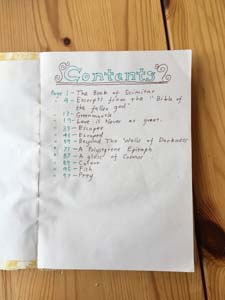 Contents
Page 1 - The Book of Scimitar
" 9 - Excerpts from the "Bible of the fallen god"
" 17 - Greenmantle
" 19 - Love is Never as great.
" 35 - Escapee
" 41 - Escaped
" 59 - Beyond The Walls of Darkness
" - A Polystyrene Epitaph
" - A glass of Cosmos
" 89 - Colour
" 95 - Fish
" 97 - Prey